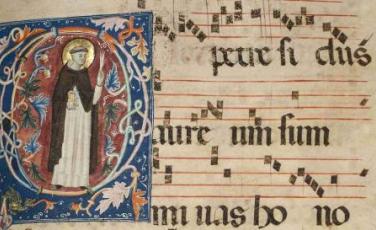 petre si clus
aure um sum
mi uas ho no